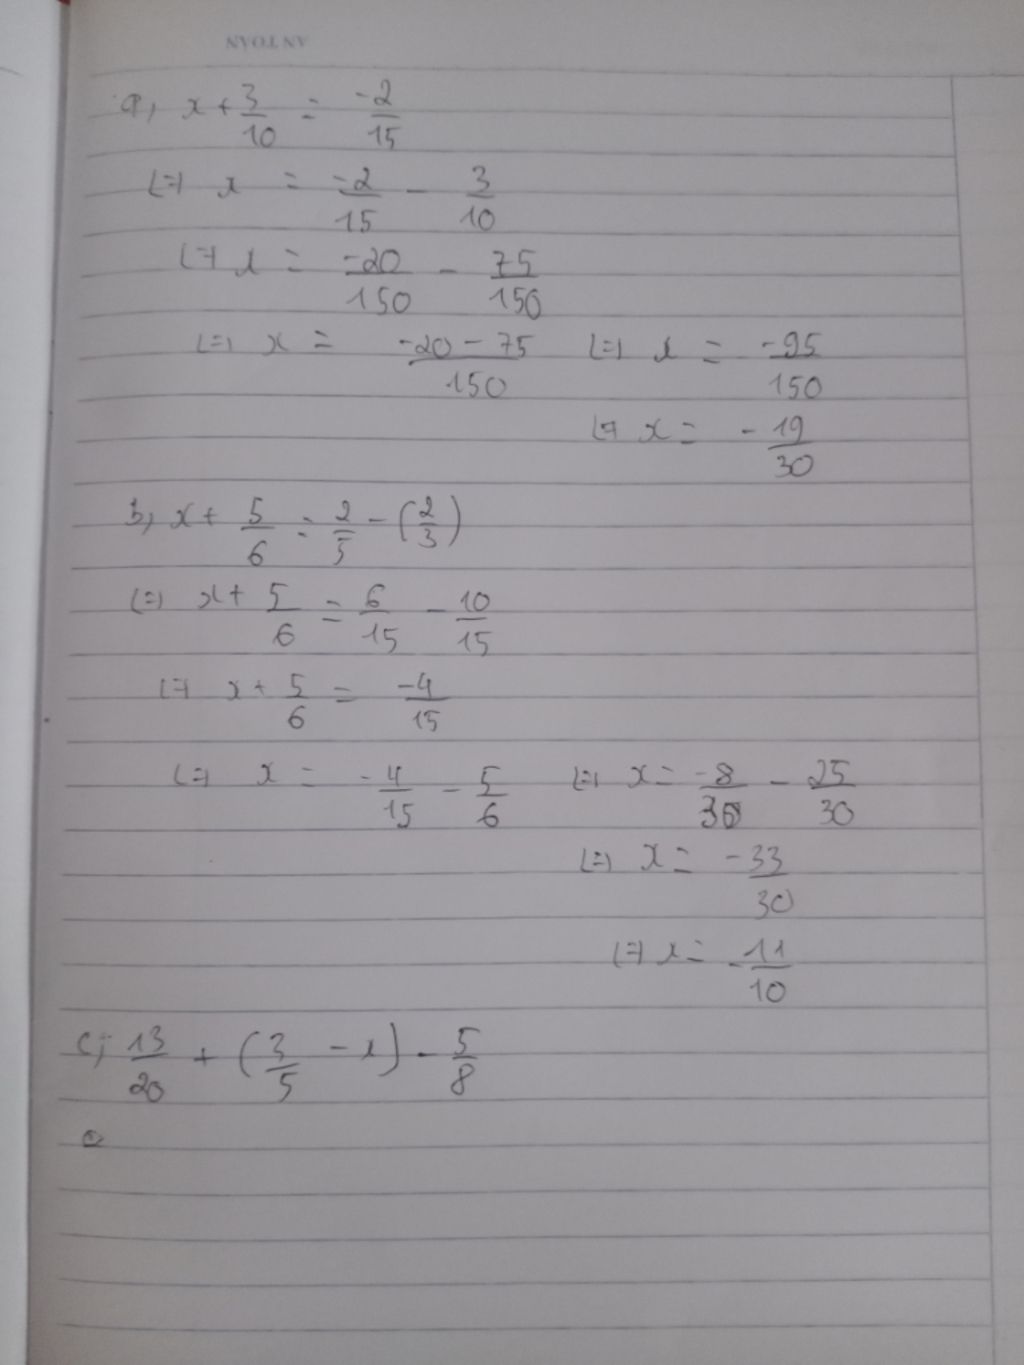 AN TOAN
a, x + 3/10 = -2/15
<=> x = -2/15 - 3/10
<=> x = -20/150 - 75/150
<=> x = -20-75/150 <=> x = -95/150
<=> x = -19/30
b, x + 5/6 = 2/5 - (2/3)
<=> x + 5/6 = 6/15 - 10/15
<=> x + 5/6 = -4/15
<=> x = -4/15 - 5/6 <=> x = -8/30 - 25/30
<=> x = -33/30
<=> x = -11/10
c, 13/20 + (3/5 - x) - 5/8